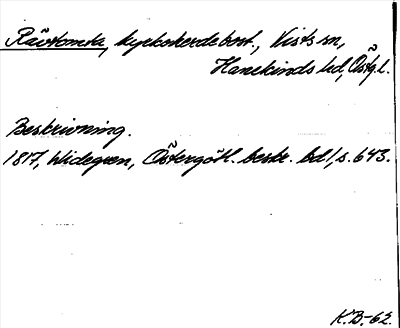 Råtomta, kyrkoherdebost., Vists sn,
Hanekinds hd, Östg.l.
Beskrivning.
1817, Widegren, Östergötl. beskr. bd 1, s. 643.
K.B.-62.